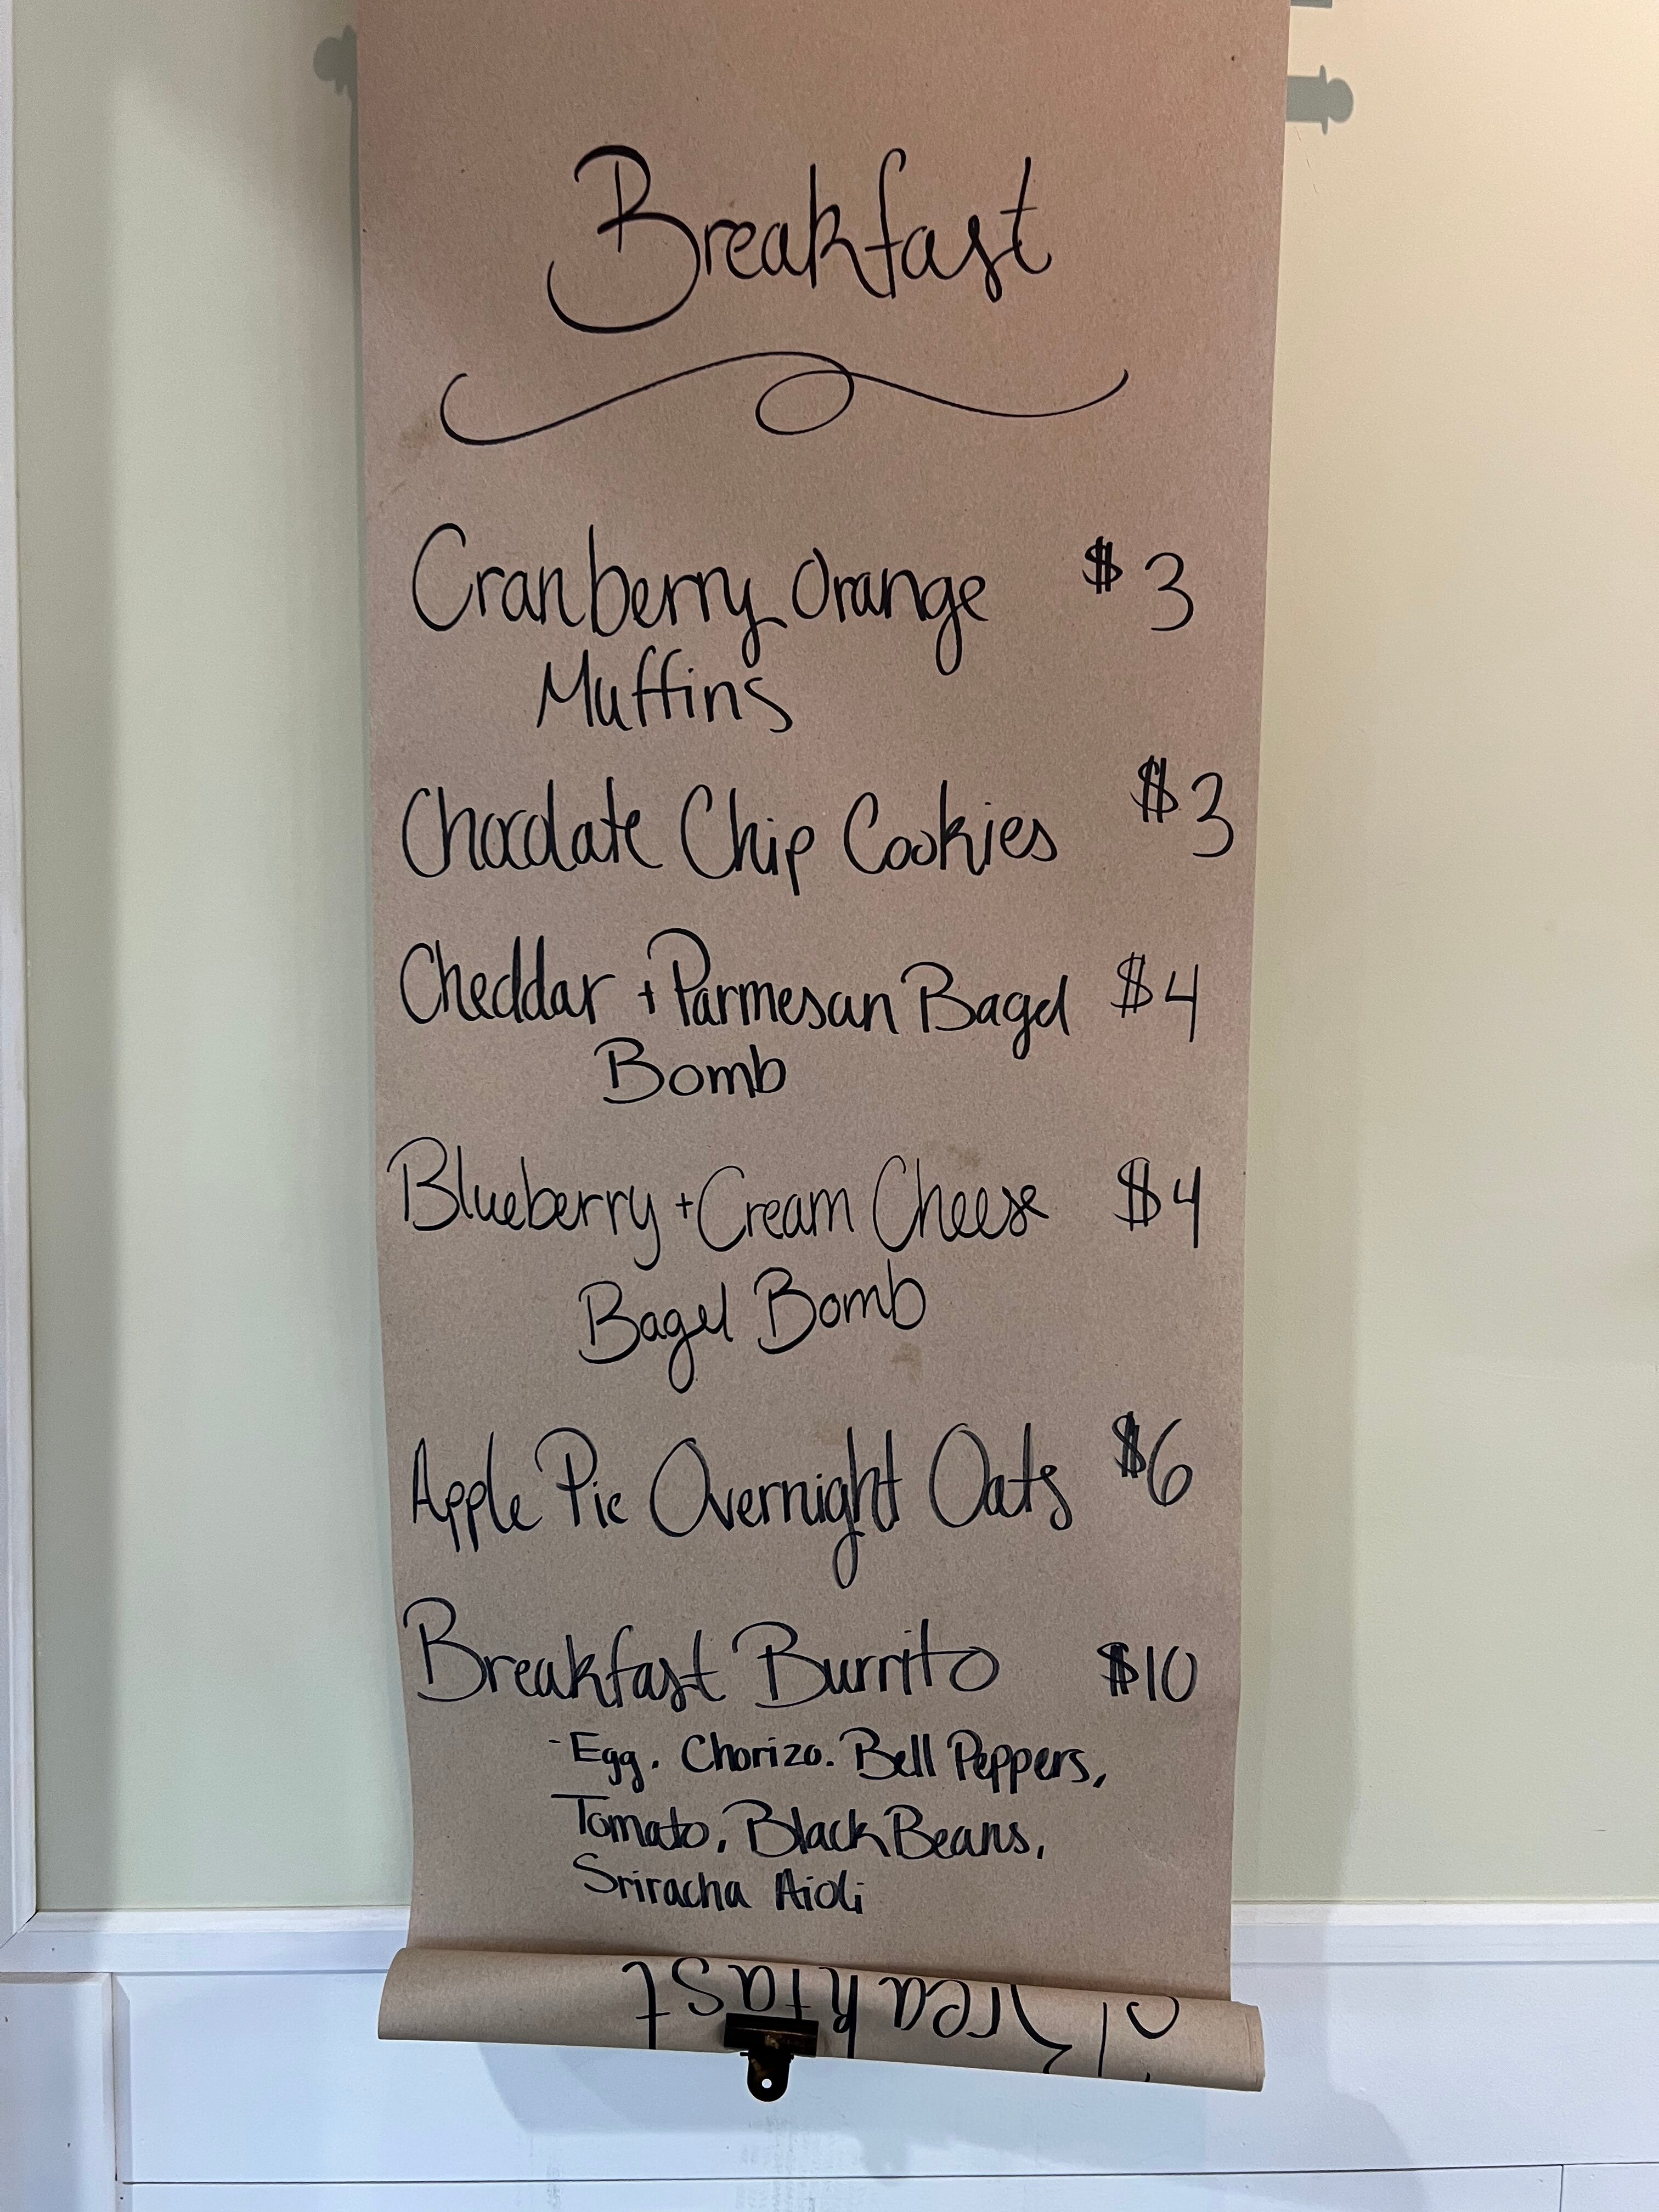 Breakfast
Cranberry Orange $3
Muffins
Chocolate Chip Cookies $3
Cheddar + Parmesan Bagel $4
Bomb
Blueberry + Cream Cheese $4
Bagel Bomb
Apple Pie Overnight Oats $6
Breakfast Burrito $10
- Egg, Chorizo, Bell Peppers,
Tomato, Black Beans,
Sriracha Aioli
Breakfast